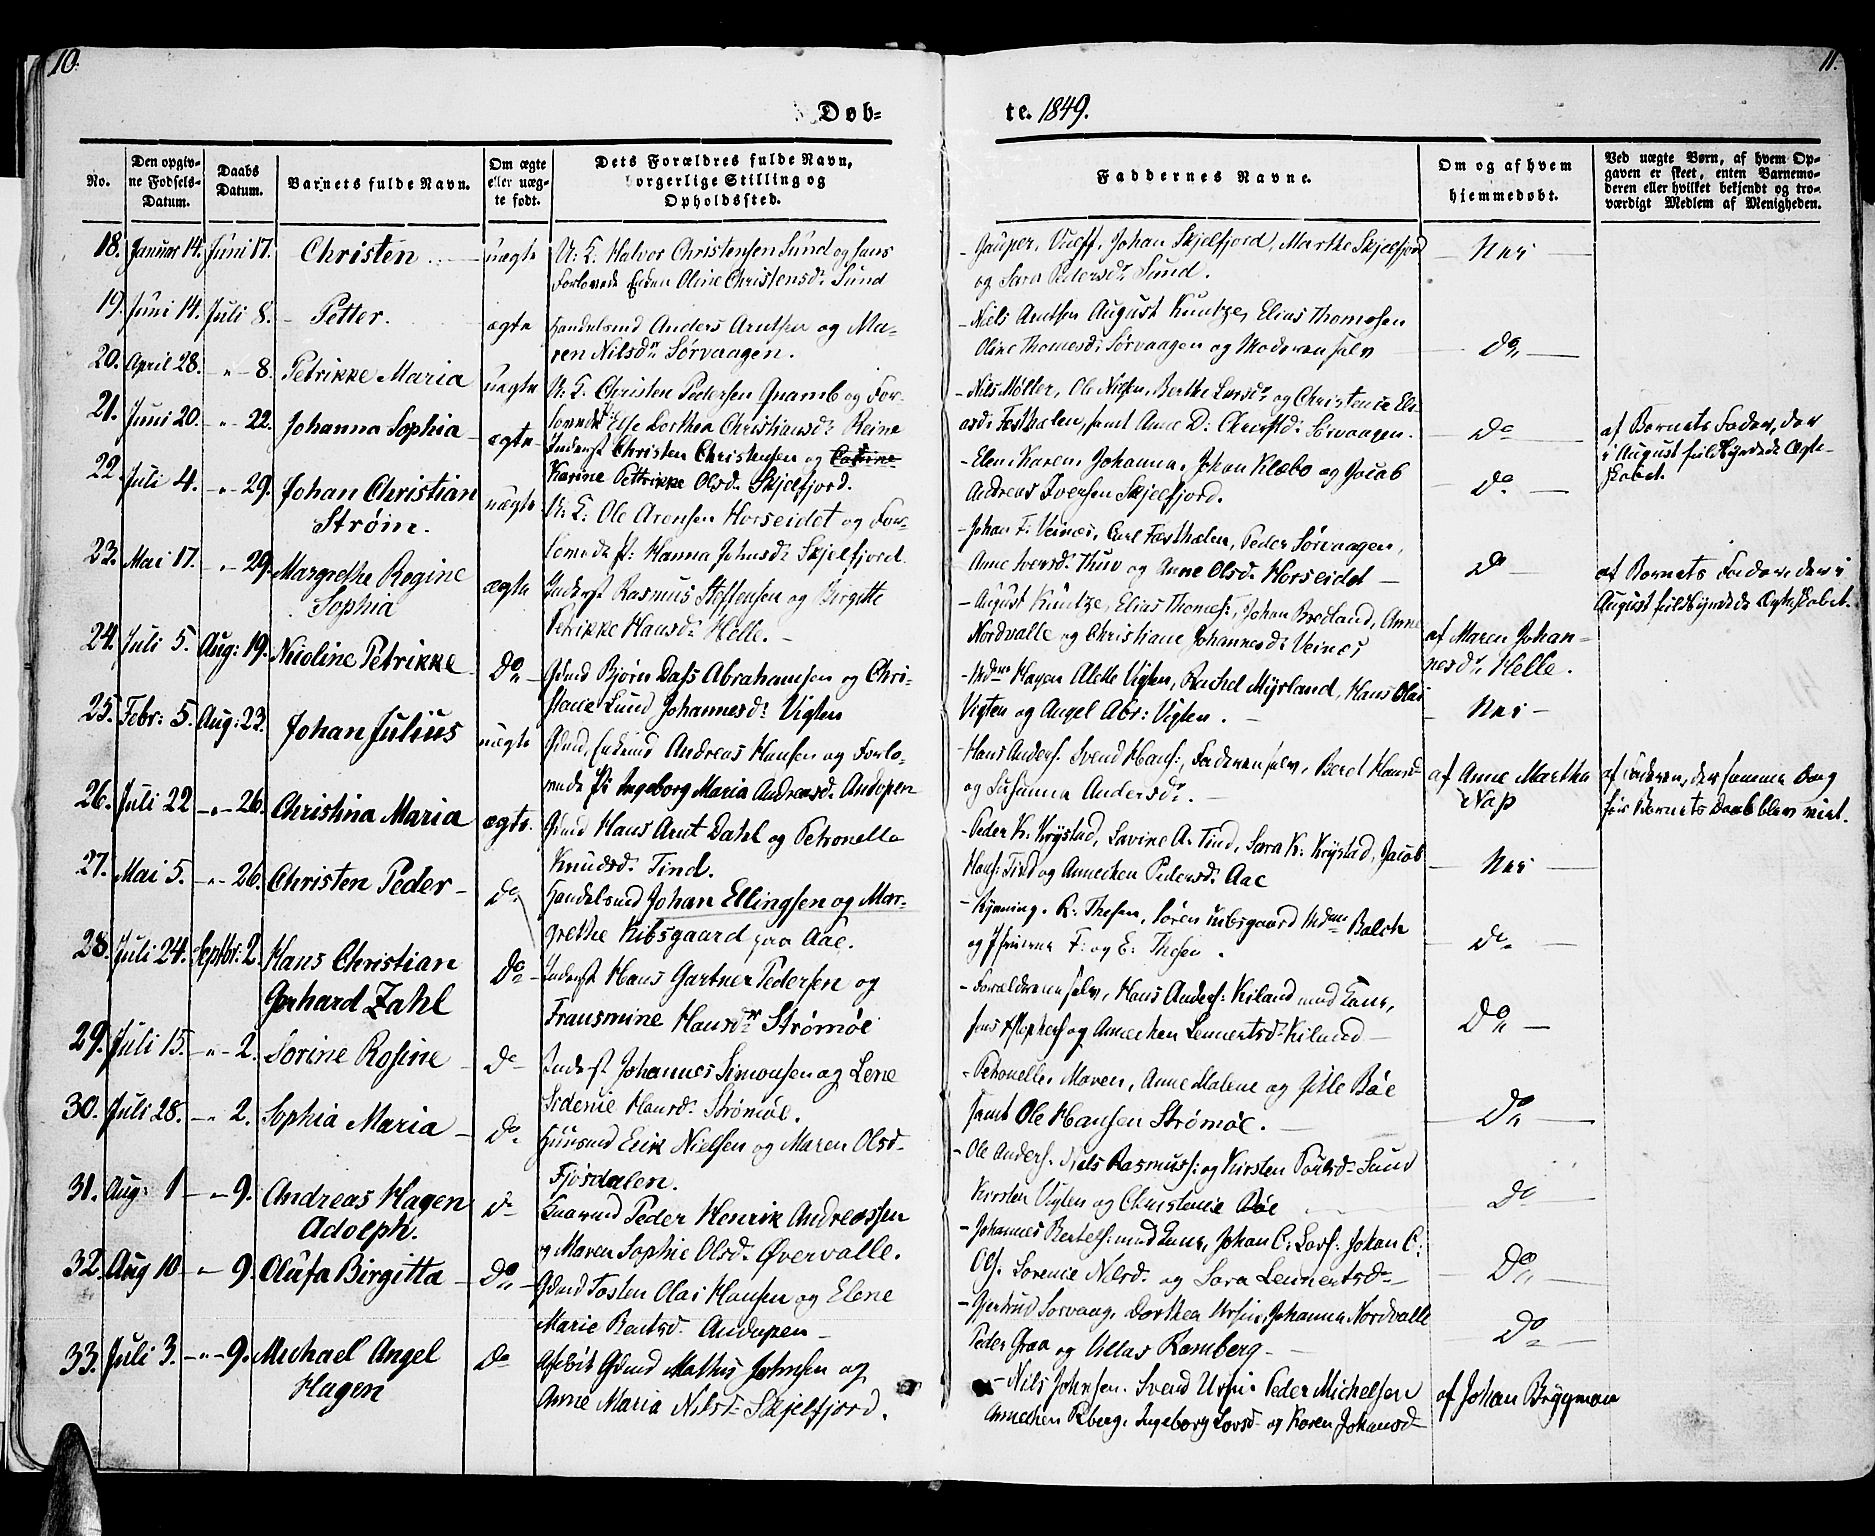 10.
11.
Døb-
te. 1849.
No.
Den opgiv-
ne Fødsels-
Datum.
Daabs
Datum.
Barnets fulde Navn.
Om ægte
eller uæg-
te født.
Dets Forældres fulde Navn,
borgerlige Stilling og
Opholdssted.
Faddernes Navne.
Om og af hvem
hjemmedøbt.
Ved uægte Børn, af hvem Op-
gaven er skeet, enten Barnemo-
deren eller hvilket bekjendt og tro-
værdigt Medlem af Menigheden.
18. Januar 14. Juni 17. Christen uægte
U: K. Halvor Christensen Sund og hans
Forlovede Enken Oline Christensdr Sund
Johan Skjelfjord, Marthe Skjelfjord
og Sara Pedersdr Sund.
Nei
19. Juni 14. Juli 8. Petter. ægte
Handelsmd Anders Arntsen og Ma-
ren Nilsdr Sørvaagen.
Niels Arntsen August Kuntze, Elias Thomesen
Oline Thomesdr Sørvaagen og Moderen selv
Do
20. April 28. " 8. Petrikke Maria uægte
U: K. Christen Pedersen Qvamb og For-
lovede Else Dorthea Christiansdr Reine
Nils Møller, Ole Nilsen, Berthe Larsdr og Christence
Festhælen, samt Anne D. Sørvaagen.
Do
af Barnets Fader, der
i August fuldbyrdede Ægte-
skabet.
21. Juni 20. " 22. Johanna Sophia ægte
Inderst Christen Christensen og Catrine
Karine Pettrikke Olsdr Skjelfjord.
Elen, Karen, Johanna, Johan Klæbo og Jacob
Andreas Iversen Skjelfjord.
Do
22. Juli 4. " 29. Johan Christian
Strøm. uægte
U: K. Ole Arensen Horseidet og For-
lovede P: Hanna Johnsdr Skjelfjord
Johan F: Veines, Carl Festhælen, Peder Sørvaagen,
Anne Iversdr og Anne Olsdr Horseidet
Do
af Barnets Fader, der i
August fuldbyrdede Ægteskabet.
23. Mai 17. " 29. Margrethe Regine
Sophia ægte
Inderst Rasmus Steffensen og Birgitte
Petrikke Hansdr Helle.
August Kuntze, Elias Thomes:, Johan Bredland, Anne
Nordvalle og Christiane Johannesdr Veines
af Maren Johan-
nesdr Helle.
24. Juli 5. Aug: 19. Nicoline Petrikke Do
Gmd Bjørn Dass Abrahamsen og Chri-
stane Lund Johannesdr Vigten
Mdme Hagen Alette Vigten, Rachel Myrland, Hans Olai
Vigten og Angel Abr: Vigten.
Nei
25. Febr: 5. Aug: 23. Johan Julius uægte
Gmd, Enkemd Andreas Hansen og Forlo-
vede P: Ingeborg Maria Andreasdr Andopen
Hans Anders: Svend Hans:, Faderen selv, Beret Hansdr
og Susanna Andersdr.
af Anne Martha
Nap
af Faderen, der samme Dag
før Barnets Daab blev viet.
26. Juli 22 " 26. Christina Maria ægte.
Gmd Hans Arnt Dahl og Petronella
Knudsdr Tind.
Peder K. Krystad, Lavine A. Tind, Sara K: Krystad, Jacob
Hans: Tind og Annechen Pedersdr Aae
Nei
27. Mai 5. " 26. Christen Peder Do
Handelsmd Johan Ellingsen og Mar-
grethe Kibsgaard paa Aae.
R: Thesen, Søren Kibsgaard Mdme Balch
og F: og E: Thesen.
Do
28. Juli 24. Septbr: 2. Hans Christian
Gerhard Zahl Do
Inderst Hans Gartner Pedersen og
Fransmine Hansdr Strømøe
Forældrene selv, Hans Anders: Kiland med Kone,
Jens og Annechen Lennertsdr Kiland
Do
29. Juli 15. " 2. Sorine Rosine Do
Inderst Johannes Simonsen og Lene
Sidenie Hansdr Strømøe.
Petronelle, Maren, Anne Malene og Gille Bøe
samt Ole Hansen Strømøe.
Do
30. Juli 28. " 2. Sophia Maria Do
Huusmd Erik Nielsen og Maren Olsdr
Fjøsdalen.
Ole Anders: Niels Rasmuss: og Kirsten Poulsdr Sund
Kirsten Vigten og Christence Bøe
Do
31. Aug: 1 " 9. Andreas Hagen
Adolph. Do
Gaardmd Peder Henrik Andreassen
og Maren Sophie Olsdr Øvervalle.
Johannes Bertels: med Kone, Johan C: Lars: Johan C:
Ols. Sorenie Nilsdr og Sara Lennertsdr
Do
32. Aug 10 " 9. Olufa Birgitta Do
Gmd Tosten Olai Hansen og Elene
Marie Bentsdr Andopen
Gjertrud Sørvaag. Dorthea Ursin, Johanna Nordvalle
Peder Graa og Ramberg
Do
33. Juli 3. " 9. Michael Angel
Hagen Do
Gmd Mathis Johnsen og
Anne Maria Nilsdr Skjelfjord.
Nils Johnsen. Svend Ursin Peder Michelsen
Annechen Reberg, Ingeborg Larsdr og Karen Johansdr
af Johan Bryggman